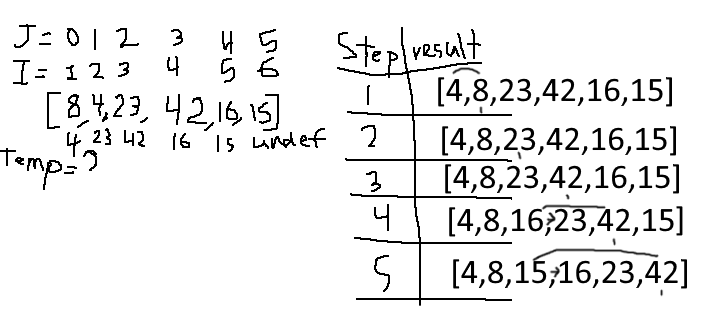 J= 0 1 2 3 4 5
I= 1 2 3 4 5 6
[8,4,23, 42,16,15]
4 23 42 16 15 undef
Temp=?
Step result
1 [4,8,23,42,16,15]
2 [4,8,23,42,16,15]
3 [4,8,23,42,16,15]
4 [4,8,16,23,42,15]
5 [4,8,15,16,23,42]